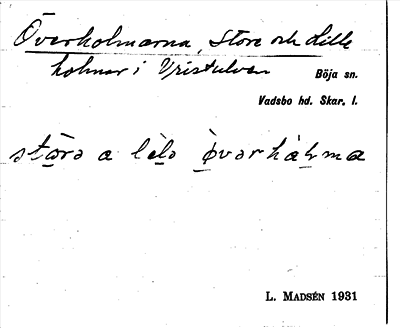 Överholmarna, Store och Lille
holmar i Ymsälven
Böja sn.
Vadsbo hd. Skar. l.
stɷrə a lilə øvərhålma
L. MADSÉN 1931